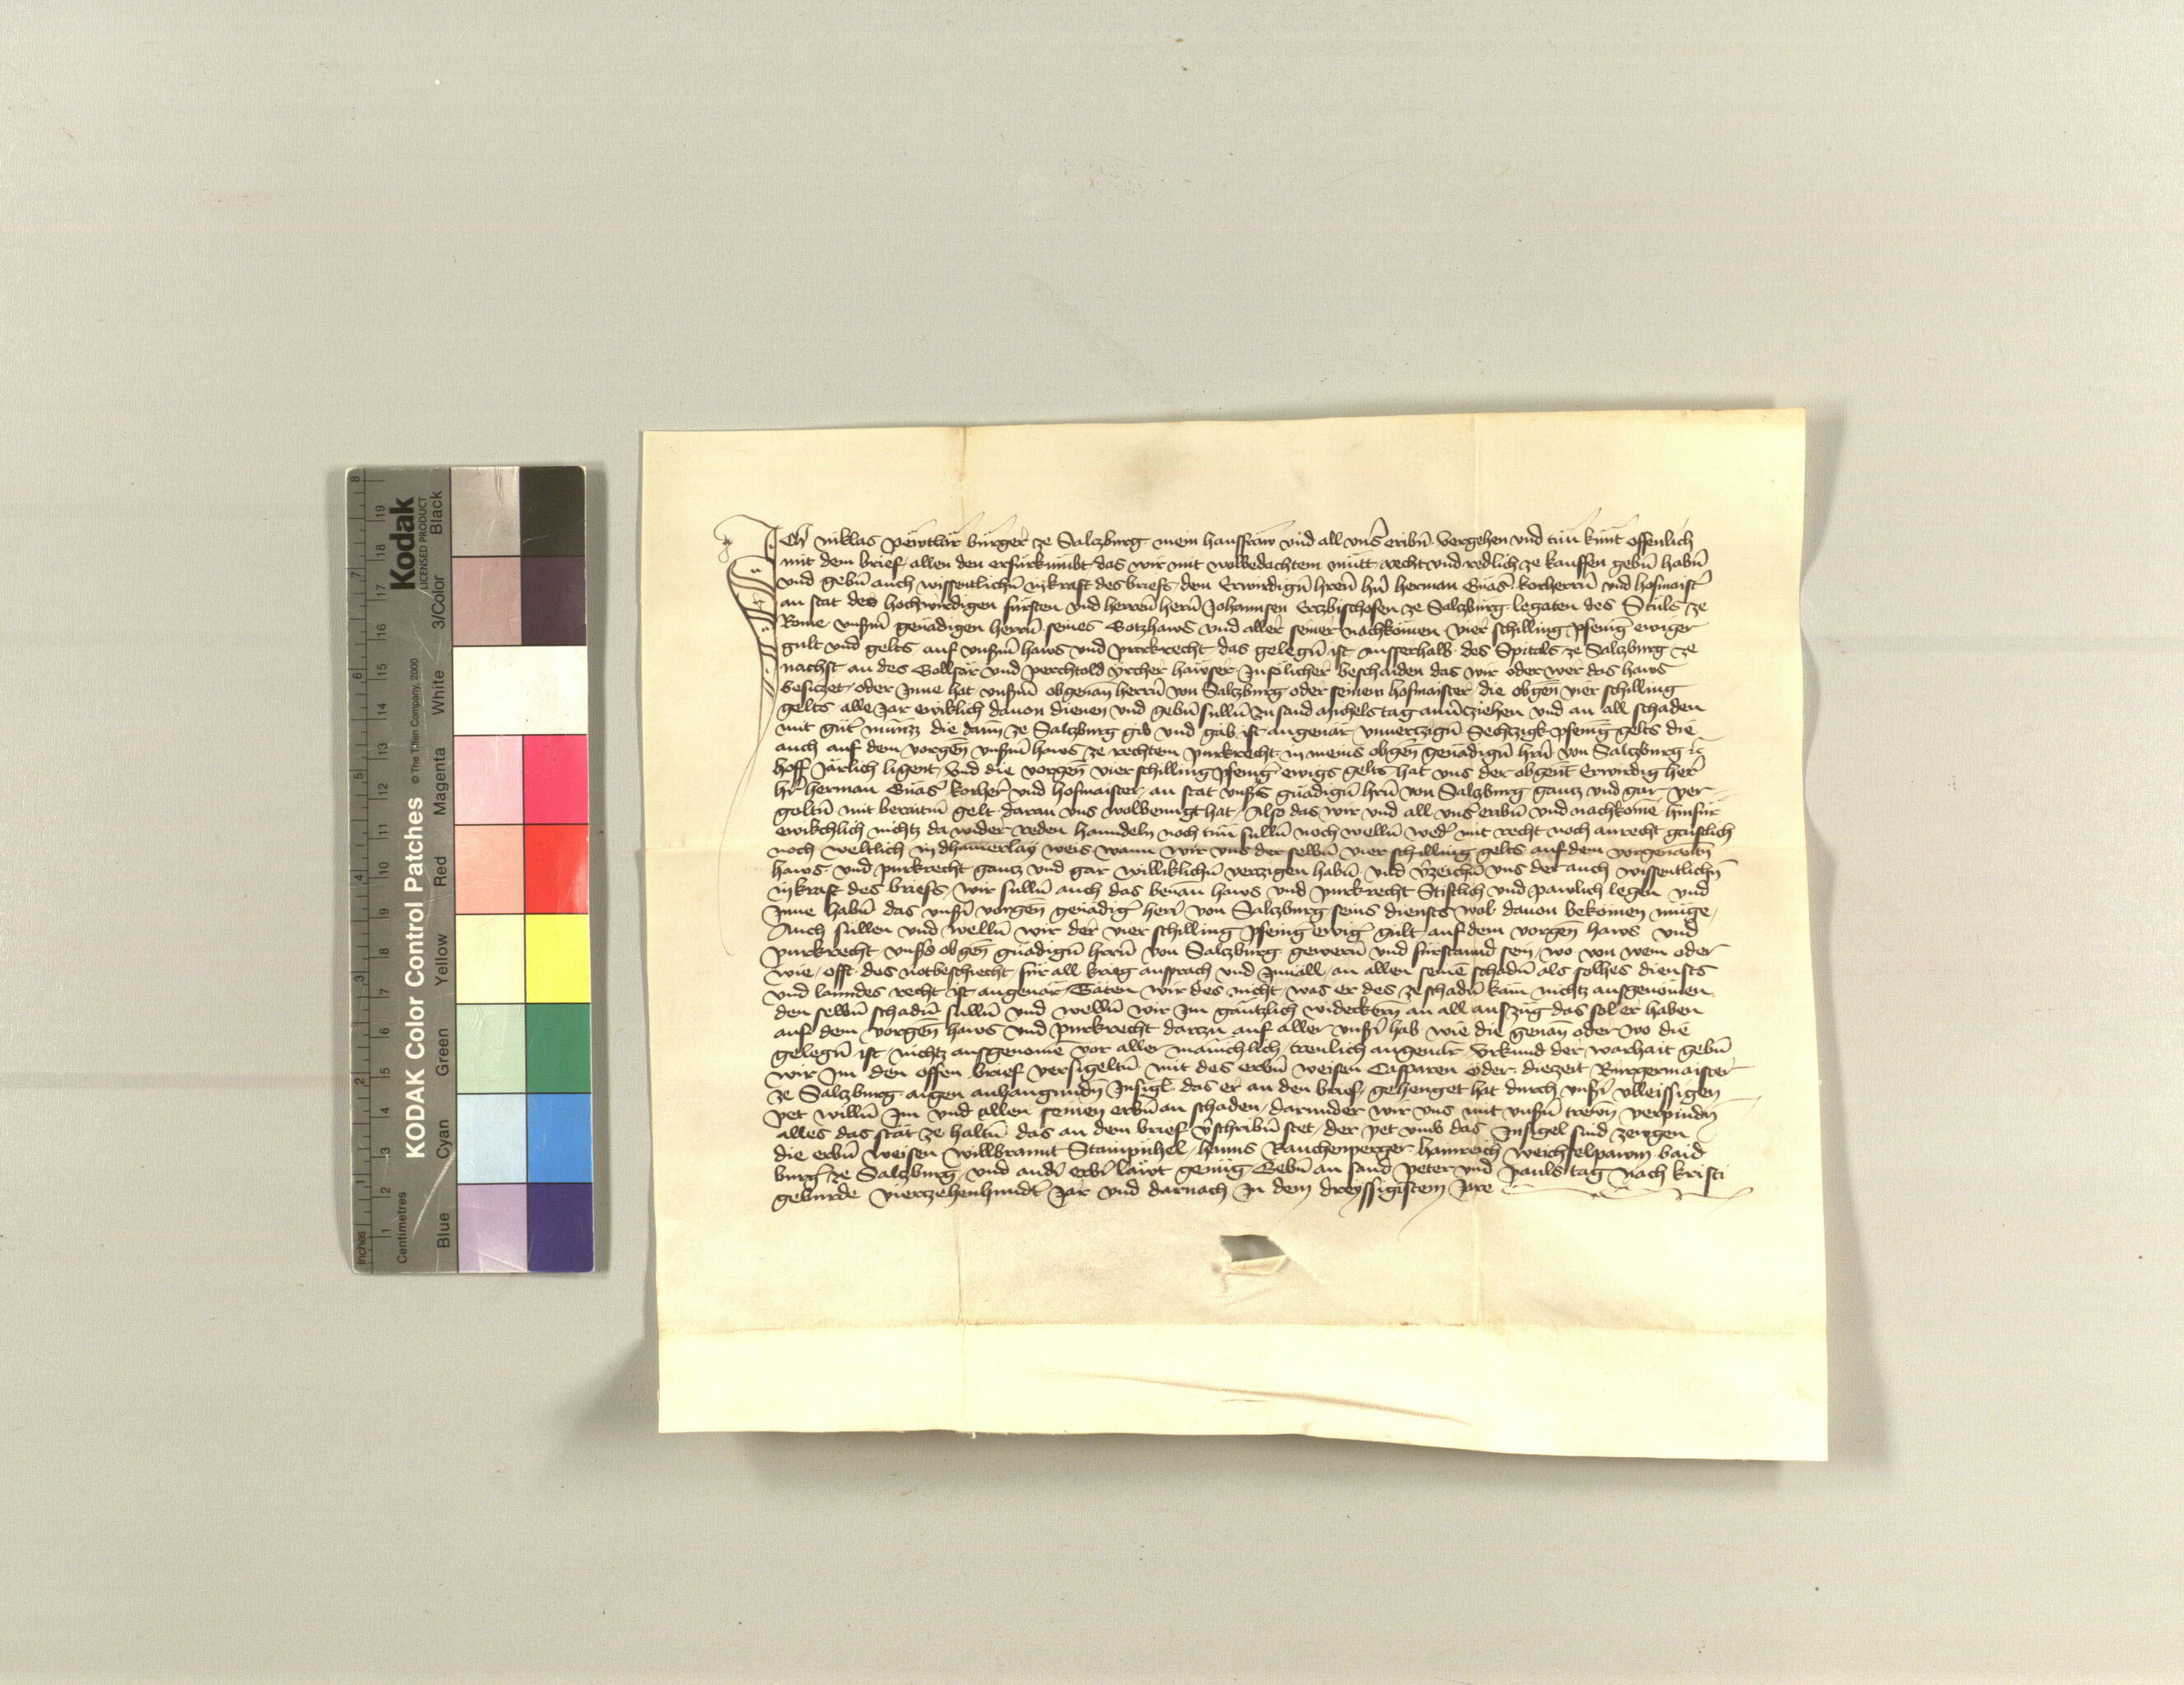 KODAK Color Control Patches © The Tiffen Company, 2000
Kodak
LICENSED PRODUCT
Inches 1 2 3 4 5 6 7 8
Centimetres 1 2 3 4 5 6 7 8 9 10 11 12 13 14 15 16 17 18 19
Blue Cyan Green Yellow Red Magenta White 3/Color Black
Ich niklas pewtlär burger ze Salczburg mein hausfraw vnd all vnser eribn vergehen vnd tun kunt offenlich
mit dem brief allen den er fürkumbt das wir mit wolbedachtem mutt recht vnd redlich ze kauffen gebn habn
vnd gebn auch wissentlichn in kraft des briefs dem Erwirdign hren hn herman korherrn vnd hofmaister
an stat des hochwirdigen fürsten vnd herren hern Johannsen Erczbischofen ze Salczburg legaten des Stuls ze
Rome vnserm genädigen herrn seines Gotzhaws vnd aller seiner nachkomen vier schilling pfenig ewiger
gult vnd gelts auf vnserm haws vnd purkrecht das gelegn ist ausserhalb des Spitals ze Salczburg ze
nachst an des vnd perchtold hawser In solicher beschaiden das wir oder wer das haws
besiczet oder Inne hat vnserm obgenan herrn von Salczburg oder seinem hofmaister die obgen vier schilling
gelts alle Jar ewiklich dauon dienen vnd gebn sulln zu sand michels tag an vercziehen vnd an all schaden
mit guter münzz die dann ze Salczburg gib vnd gäb ist angeuär Sechczigk pfenig gelts die
auch auf dem vorgen vnserm haws ze rechtem purkrecht in meins obgen genädign hrn von Salczburg
hoff Järlich ligent vnd die vorgen vier schilling pfenig ewigs gelts hat vns der obgent Erwirdig her
her herman korher vnd hofmaister an stat vnsers gnädign hrn von Salczburg gancz vnd gar ver
goltn mit beraitm gelt daran vns wolbenugt hat Also das wir vnd all vnser erbn vnd nachkome hinfur
ewikchlich nichtz da wider reden hanndeln noch tun sulln noch welln weder mit recht noch anrecht gaistlich
noch weltlich in dhainerlay weis wann wir vns der selbn vier schilling gelts auf dem vorgenanten
haws vnd purkrecht gancz vnd gar williklichn verczigen habn vnd verzeichn vns der auch wissentlichn
in kraft des briefs wir sulln auch das benan haws vnd purkrecht Stiftlich vnd pawlich legen vnd
Inne habn das vnser vorgen genädiger herr von Salczburg seins diensts wol dauon bekomen muge
Auch sullen vnd welln wir der vier schilling pfenig ewiger gult auf dem vorgen haws vnd
purkrecht vnsers obgen gnädign herrn von Salczburg gewern vnd fürstannd sein wo von wem oder
wie offt des notbeschiecht für all krieg ansprach vnd Inuäll an allen seine schadn als solhes diensts
vnd lanndes recht ist angeuär Täten wir des nicht was er des ze schadn käm nichtz ausgenomen
den selbn schadn sulln vnd welln wir Im gäntzlich widerkern an all auszug das sol er haben
auf dem vorgen haws vnd purkrecht darczu auf aller vnser hab wie die genan oder wo die
gelegn ist nichtz ausgenome vor aller männichlich trewlich angeuär Vrkund der warhait gebn
wir Im den offen brief versigeltn mit des erbn weisen Casparen Oder diezeit Burgermaister
ze Salczburg aigen anhangundn Insigl das er an den brief gehenget hat durch vnser vlleissigen
pet willn Im vnd allen seinen erbn an schaden darunder wir vns mit vnsern trewn verpindn
alles das stät ze haltn das an dem brief verschribn stet der pet vmb das Insigel sind zewgen
die erbn weisen willbrannt Stainpühel hanns Rauchenperger hainreich weichselpawm baid
burger ze Salczburg vnd ander erber läwt genug Gebn an sand peter vnd pauls tag nach kristi
geburde vierczehenhundert Jar vnd darnach In dem dreyssigistem Jare